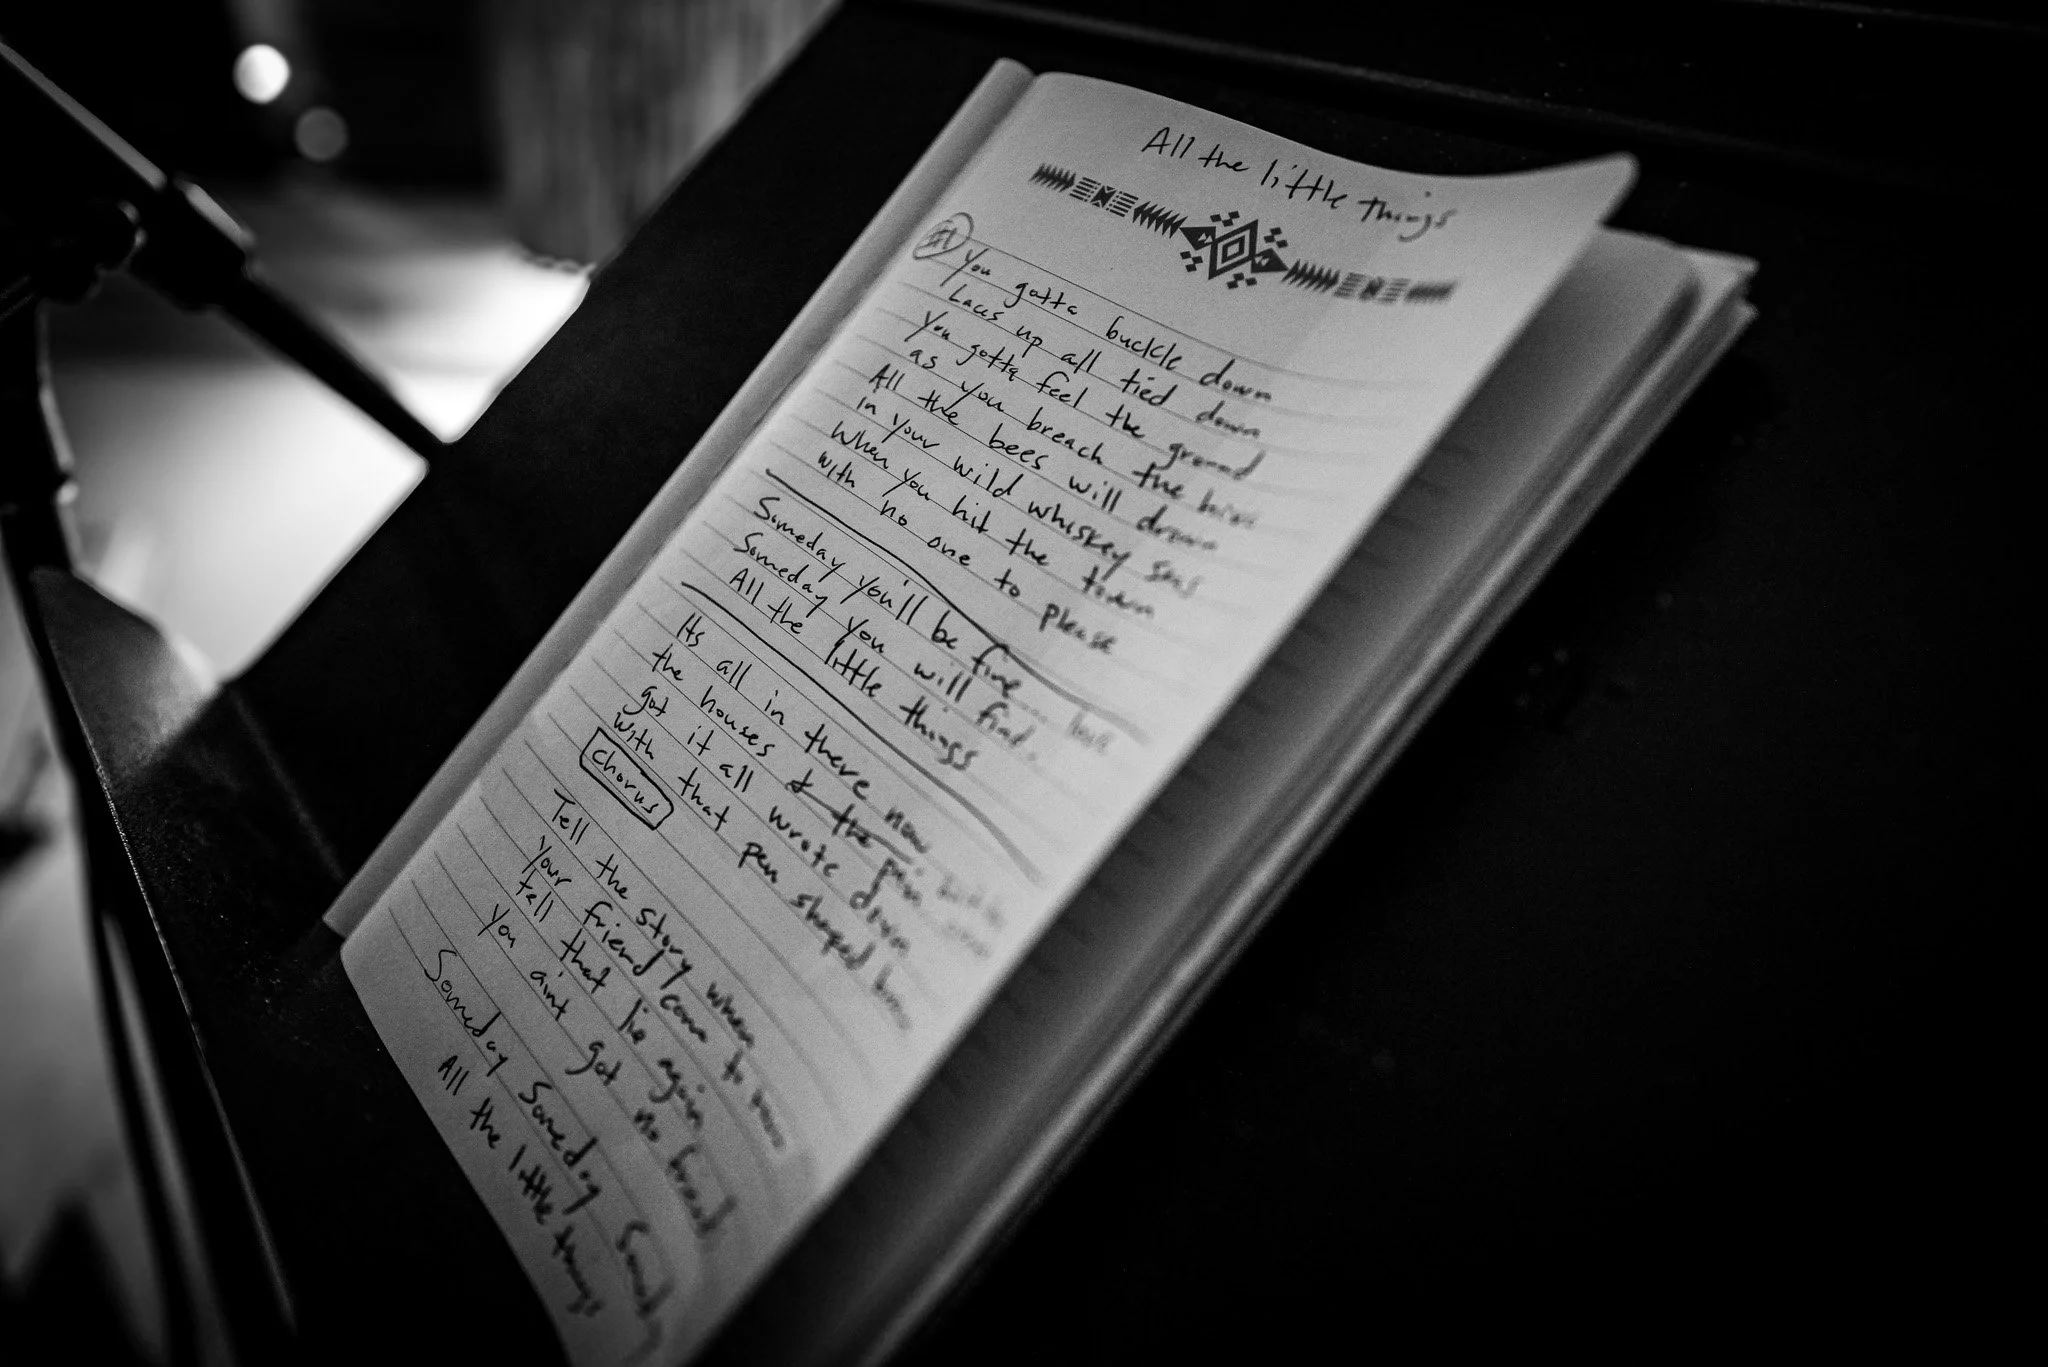 All the little things
You gotta buckle down
Laces up all tied down
You gotta feel the ground
as you breach the
All the bees will drown
in your wild whiskey seas
When you hit the town
with no one to please
Someday you'll be fine
Someday you will find
All the little things
Its all in there now
the houses & the
got it all wrote down
with that pen shaped
Chorus
Tell the story when
Your friend can to
tell that lie again
You aint got no bread
Someday Someday Someday
All the little things